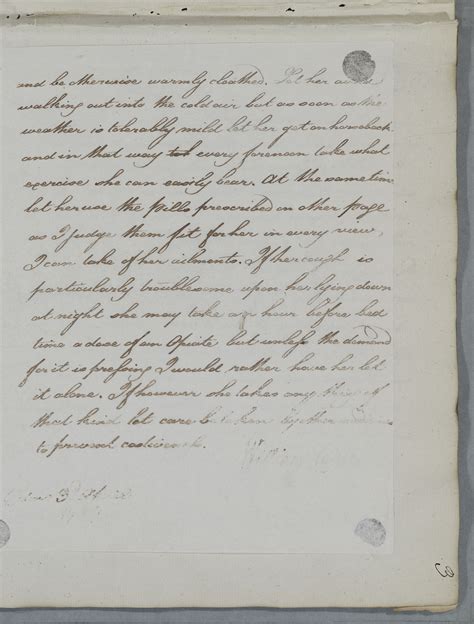 and be otherwise warmly cloathed. Let her avoid
walking out into the cold air but as soon as the
weather is tolerably mild let her get on horseback
and in that way every forenoon take what
exercise she can easily bear. At the same time
let her use the Pills prescribed on other page
as I judge them fit for her in every view,
I can take of her ailments. If her cough is
particularly troublesome upon her lying down
at night she may take an hour before bed
time a dose of an Opiate but unless the demand
for it is pressing I would rather have her let
it alone. If however she takes any thing of
that kind let care be taken
to prevent costiveness.
William
3